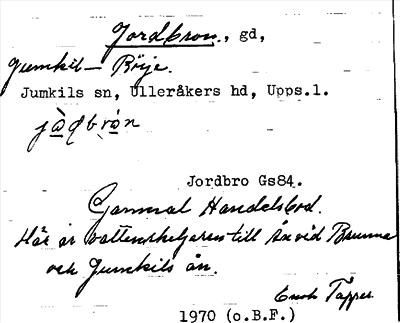 Jordbron., gd,
Jumkil - Börje.
Jumkils sn, Ulleråkers hd, Upps.l.
Jordbro Gs84.
Gammal Handelsbod.
Här är vattenskeljaren till ån vid Brunna
och Jumkils ån.
Enok Tapper
1970 (o.B.F.)